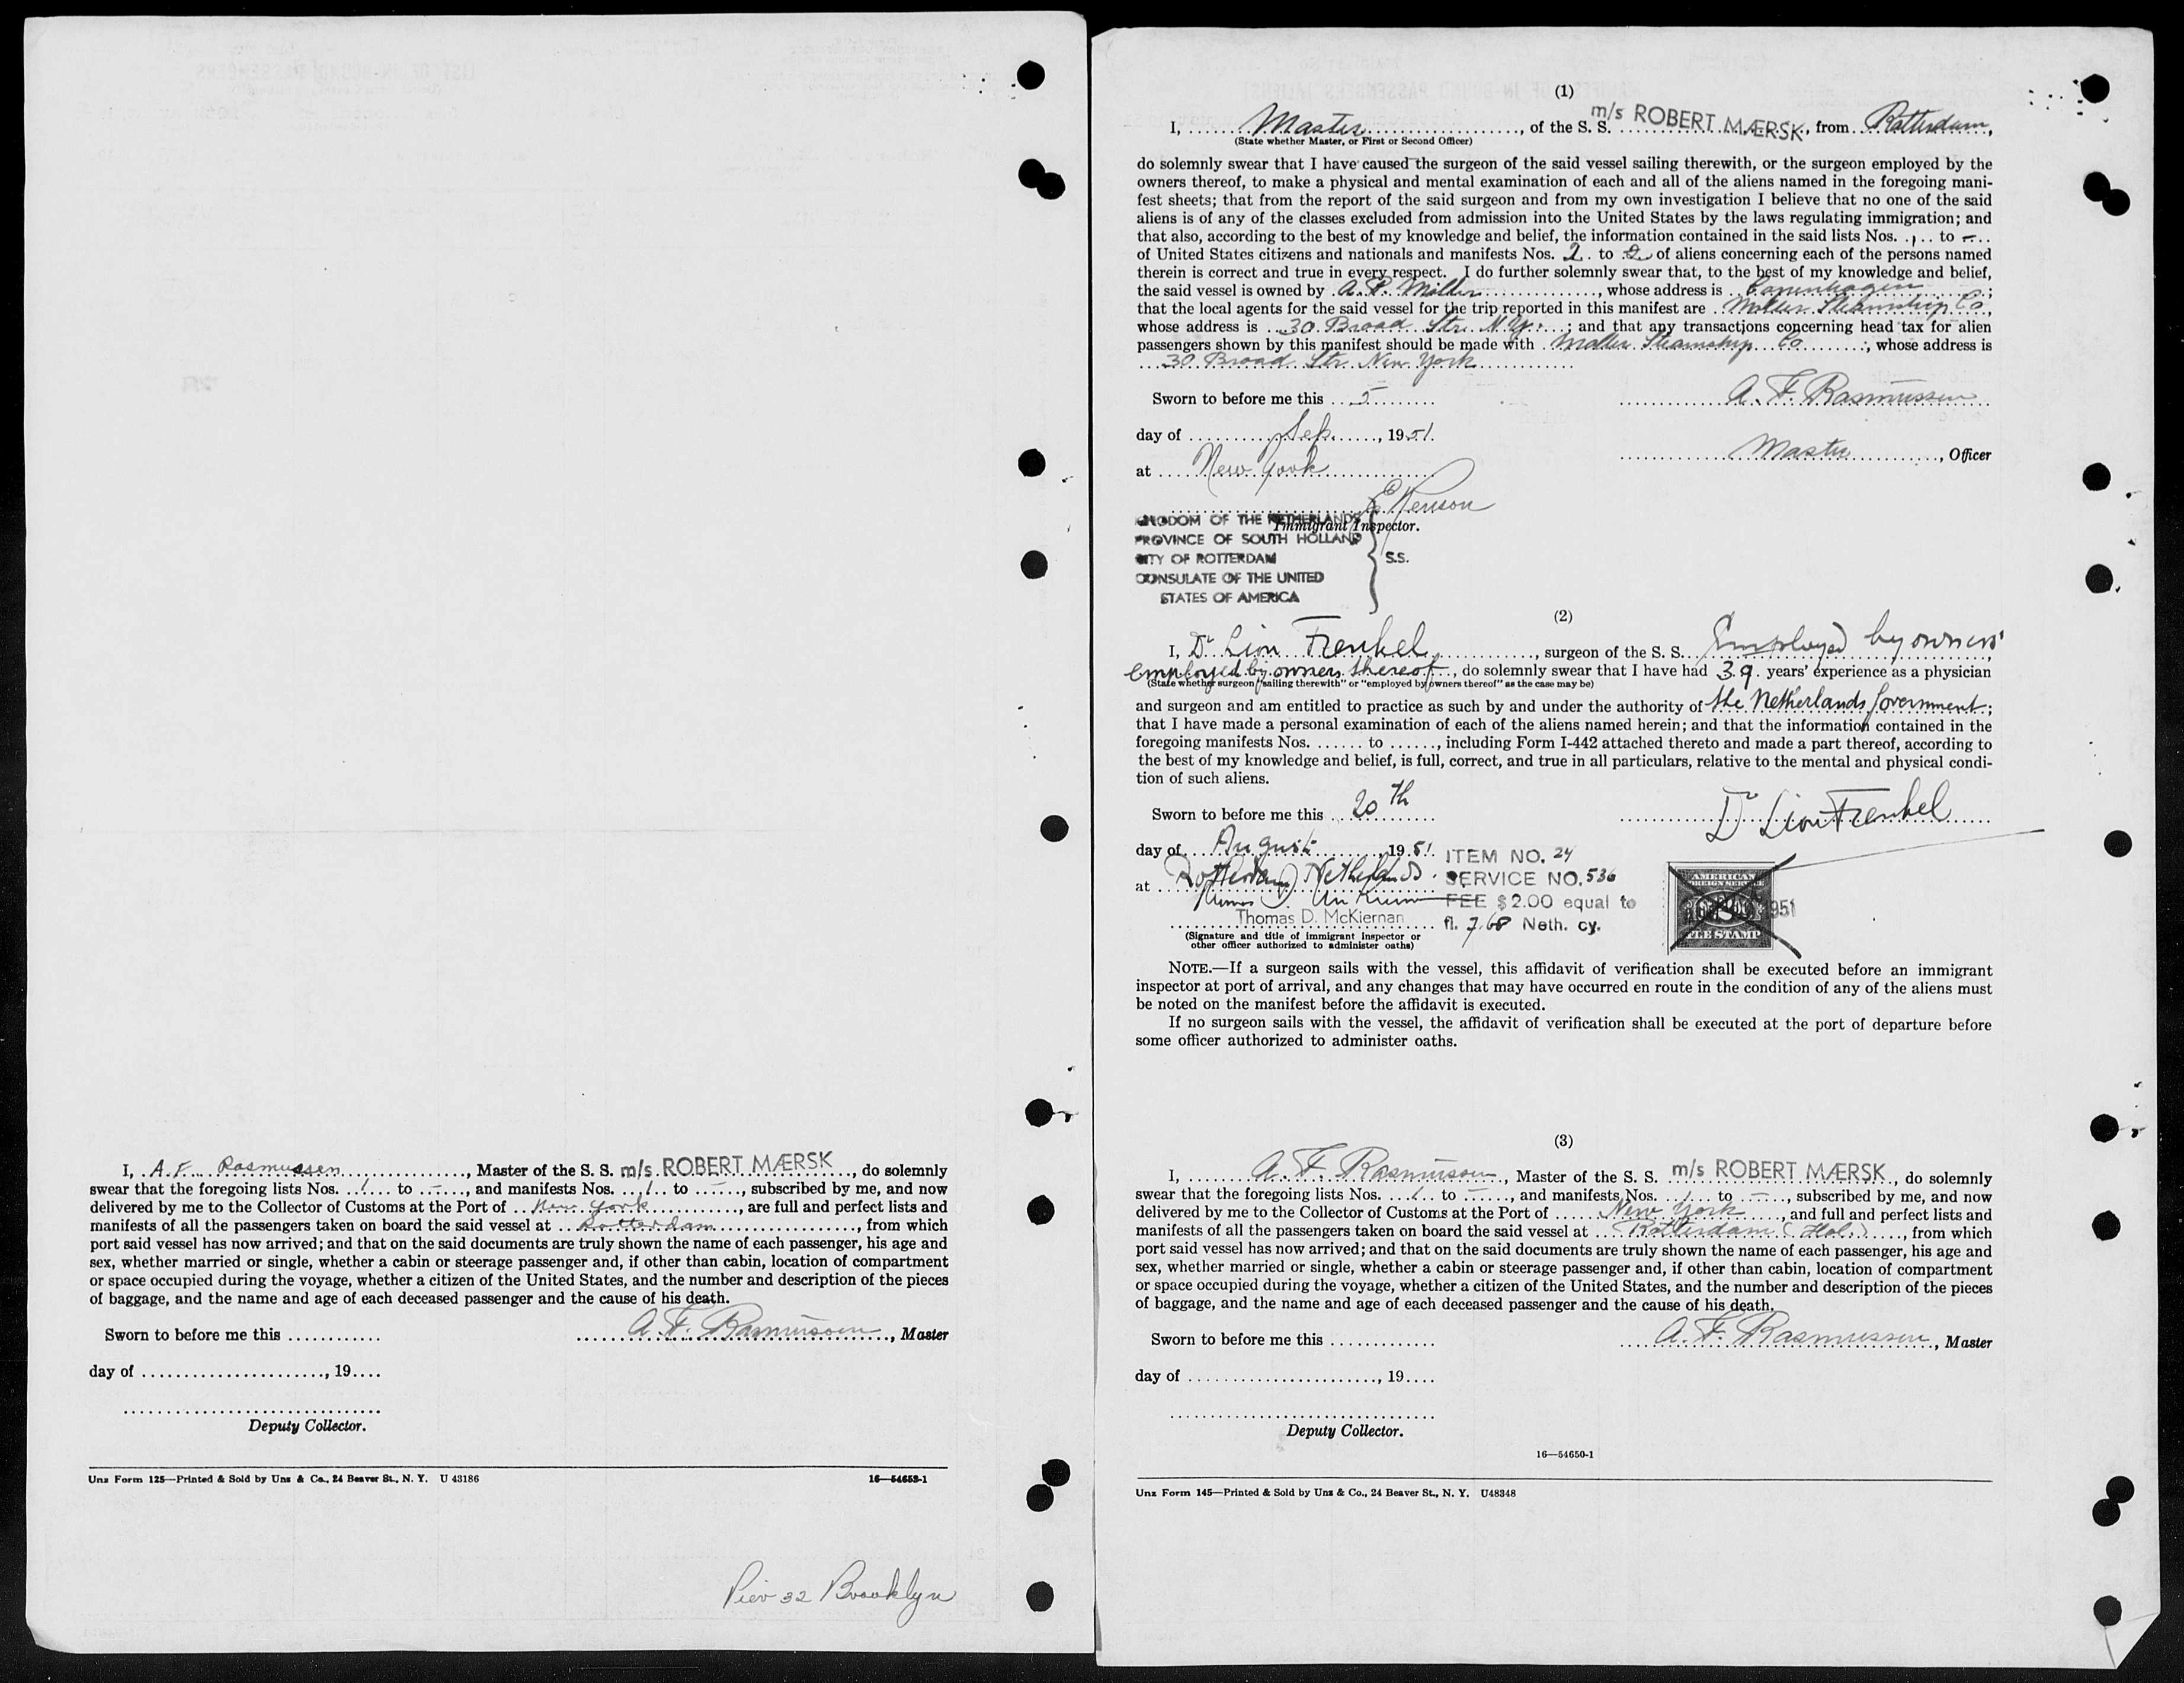 I, A. F. Rasmussen, Master of the S. S. m/s ROBERT MÆRSK, do solemnly
swear that the foregoing lists Nos. 1 to -, and manifests Nos. 1 to -, subscribed by me, and now
delivered by me to the Collector of Customs at the Port of New York, are full and perfect lists and
manifests of all the passengers taken on board the said vessel at Rotterdam, from which
port said vessel has now arrived; and that on the said documents are truly shown the name of each passenger, his age and
sex, whether married or single, whether a cabin or steerage passenger and, if other than cabin, location of compartment
or space occupied during the voyage, whether a citizen of the United States, and the number and description of the pieces
of baggage, and the name and age of each deceased passenger and the cause of his death.
Sworn to before me this ............ A. F. Rasmussen, Master
day of ......................, 19....
Deputy Collector.
Unz Form 125—Printed & Sold by Unz & Co., 24 Beaver St., N. Y. U 43186 16—54653-1
Pier 32 Brooklyn
(1)
I, Master, of the S. S. m/s ROBERT MÆRSK, from Rotterdam,
(State whether Master, or First or Second Officer)
do solemnly swear that I have caused the surgeon of the said vessel sailing therewith, or the surgeon employed by the
owners thereof, to make a physical and mental examination of each and all of the aliens named in the foregoing mani-
fest sheets; that from the report of the said surgeon and from my own investigation I believe that no one of the said
aliens is of any of the classes excluded from admission into the United States by the laws regulating immigration; and
that also, according to the best of my knowledge and belief, the information contained in the said lists Nos. 1 to -
of United States citizens and nationals and manifests Nos. 2 to 2 of aliens concerning each of the persons named
therein is correct and true in every respect. I do further solemnly swear that, to the best of my knowledge and belief,
the said vessel is owned by A. P. Moller, whose address is Copenhagen;
that the local agents for the said vessel for the trip reported in this manifest are Moller Steamship Co,
whose address is 30 Broad Str. N.Y.; and that any transactions concerning head tax for alien
passengers shown by this manifest should be made with Moller Steamship Co, whose address is
30 Broad Str New York
Sworn to before me this 5 A. F. Rasmussen
day of Sep., 1951.
Master, Officer
at New York
Immigrant Inspector.
KINGDOM OF THE NETHERLANDS
PROVINCE OF SOUTH HOLLAND
CITY OF ROTTERDAM S.S.
CONSULATE OF THE UNITED
STATES OF AMERICA
(2)
I, Dr Lion Frenkel, surgeon of the S. S. Employed by owners
employed by owners thereof, do solemnly swear that I have had 39 years' experience as a physician
(State whether surgeon "sailing therewith" or "employed by owners thereof" as the case may be)
and surgeon and am entitled to practice as such by and under the authority of the Netherlands Government;
that I have made a personal examination of each of the aliens named herein; and that the information contained in the
foregoing manifests Nos. ...... to ......, including Form I-442 attached thereto and made a part thereof, according to
the best of my knowledge and belief, is full, correct, and true in all particulars, relative to the mental and physical condi-
tion of such aliens.
Sworn to before me this 20th Dr Lion Frenkel
day of August 1951. ITEM NO. 24
at Rotterdam, Netherlands. SERVICE NO. 536
FEE $2.00 equal to
Thomas D. McKiernan fl. 7.68 Neth. cy.
(Signature and title of immigrant inspector or
other officer authorized to administer oaths)
AMERICAN
FOREIGN SERVICE
1951
FEE STAMP
NOTE.—If a surgeon sails with the vessel, this affidavit of verification shall be executed before an immigrant
inspector at port of arrival, and any changes that may have occurred en route in the condition of any of the aliens must
be noted on the manifest before the affidavit is executed.
If no surgeon sails with the vessel, the affidavit of verification shall be executed at the port of departure before
some officer authorized to administer oaths.
(3)
I, A. F. Rasmussen, Master of the S. S. m/s ROBERT MÆRSK, do solemnly
swear that the foregoing lists Nos. 1 to -, and manifests Nos. 1 to -, subscribed by me, and now
delivered by me to the Collector of Customs at the Port of New York, and full and perfect lists and
manifests of all the passengers taken on board the said vessel at Rotterdam (Hol.), from which
port said vessel has now arrived; and that on the said documents are truly shown the name of each passenger, his age and
sex, whether married or single, whether a cabin or steerage passenger and, if other than cabin, location of compartment
or space occupied during the voyage, whether a citizen of the United States, and the number and description of the pieces
of baggage, and the name and age of each deceased passenger and the cause of his death.
Sworn to before me this ............. A. F. Rasmussen, Master
day of ......................., 19....
Deputy Collector.
16—54650-1
Unz Form 145—Printed & Sold by Unz & Co., 24 Beaver St., N. Y. U48348